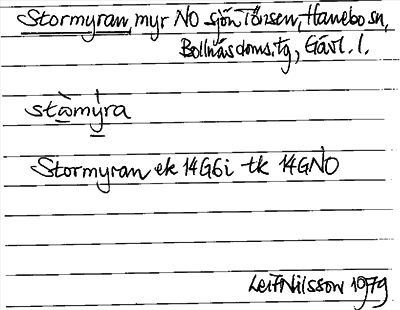 Stormyran, myr NO sjön Tönsen, Hanebo sn,
Bollnäs doms.tg, Gävl. l.
stωmy̱ra
Stormyran ek 14G6i tk 14GNO
Leif Nilsson 1979